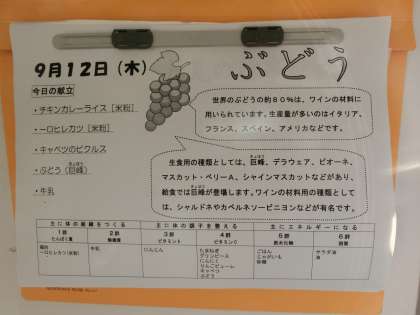 9月12日（木）
ぶどう
今日の献立
・チキンカレーライス［米粉］
・一口ヒレカツ［米粉］
・キャベツのピクルス
・ぶどう（巨峰）
・牛乳
世界のぶどうの約８０％は、ワインの材料に
用いられています。生産量が多いのはイタリア、
フランス、スペイン、アメリカなどです。
生食用の種類としては、巨峰、デラウェア、ピオーネ、
マスカット・ベリーＡ、シャインマスカットなどがあり、
給食では巨峰が登場します。ワインの材料用の種類として
は、シャルドネやカベルネソービニヨンなどが有名です。
主に体の組織をつくる 主に体の調子を整える 主にエネルギーになる
1群 2群 3群 4群 5群 6群
たんぱく質 無機質 ビタミンA ビタミンC 炭水化物 脂質
鶏肉 牛乳 にんじん たまねぎ ごはん サラダ油
一口ヒレカツ(米粉) グリンピース じゃがいも 油
にんにく 砂糖
りんごピューレ
キャベツ
ぶどう